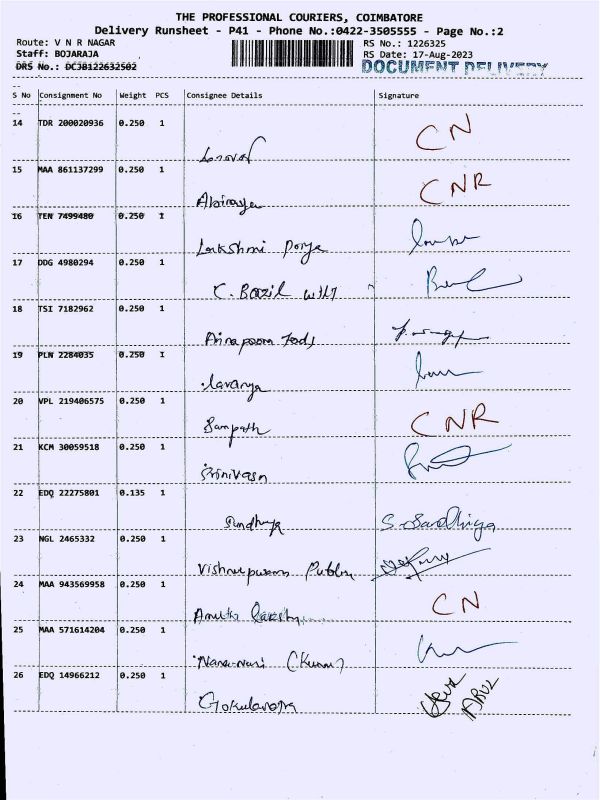 THE PROFESSIONAL COURIERS, COIMBATORE
Delivery Runsheet - P41 - Phone No.:0422-3505555 - Page No.:2
Route: V N R NAGAR
RS No.: 1226325
Staff: BOJARAJA
RS Date: 17-Aug-2023
DRS No.: DCJB122632502
DOCUMENT DELIVERY
S No Consignment No Weight PCS Consignee Details Signature
14 TDR 200020936 0.250 1 CN
15 MAA 861137299 0.250 1 CNR
Abinaya
16 TEN 7499480 0.250 1
Lakshmi Porya
17 DDG 4980294 0.250 1
C. Bazil
18 TSI 7182962 0.250 1
19 PLN 2284035 0.250 1
Lavanya
20 VPL 219406575 0.250 1 CNR
Sampath
21 KCM 30059518 0.250 1
Srinivasn
22 EDQ 22275801 0.135 1
Sandhya S. Sandhiya
23 NGL 2465332 0.250 1
24 MAA 943569958 0.250 1 CN
25 MAA 571614204 0.250 1
26 EDQ 14966212 0.250 1
Gokulanatha ARUL